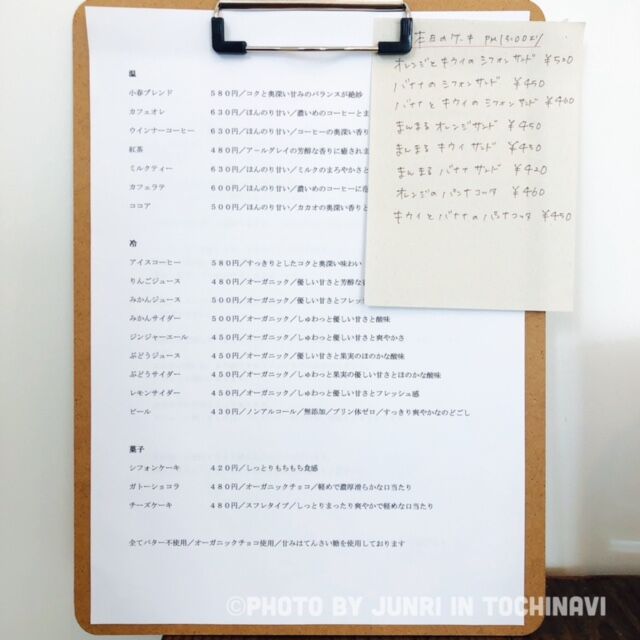 温
小春ブレンド 580円／コクと奥深い甘みのバランスが絶妙
カフェオレ 630円／ほんのり甘い／濃いめのコーヒーとま
ウインナーコーヒー 630円／ほんのり甘い／コーヒーの奥深い香り
紅茶 480円／アールグレイの芳醇な香りに癒されま
ミルクティー 630円／ほんのり甘い／ミルクのまろやかさと
カフェラテ 600円／ほんのり甘い／濃いめのコーヒーに
ココア 500円／ほんのり甘い／カカオの奥深い香りと
冷
アイスコーヒー 580円／すっきりとしたコクと奥深い味わい
りんごジュース 480円／オーガニック／優しい甘さと芳醇な
みかんジュース 500円／オーガニック／優しい甘さとフレッ
みかんサイダー 500円／オーガニック／しゅわっと優しい甘さと酸味
ジンジャーエール 450円／オーガニック／しゅわっと優しい甘さと爽やかさ
ぶどうジュース 450円／オーガニック／優しい甘さと果実のほのかな酸味
ぶどうサイダー 450円／オーガニック／しゅわっと果実の優しい甘さとほのかな酸味
レモンサイダー 450円／オーガニック／しゅわっと優しい甘さとフレッシュ感
ビール 430円／ノンアルコール／無添加／プリン体ゼロ／すっきり爽やかなのどごし
菓子
シフォンケーキ 420円／しっとりもちもち食感
ガトーショコラ 480円／オーガニックチョコ／軽めで濃厚滑らかな口当たり
チーズケーキ 480円／スフレタイプ／しっとりまったり爽やかで軽めな口当たり
全てバター不使用／オーガニックチョコ使用／甘みはてんさい糖を使用しております
本日のケーキ PM13:00より
オレンジとキウイのシフォンサンド ¥520
バナナのシフォンサンド ¥450
バナナとキウイのシフォンサンド ¥400
まんまるオレンジサンド ¥450
まんまるキウイサンド ¥450
まんまるバナナサンド ¥420
オレンジのパンナコッタ ¥460
キウイとバナナのパンナコッタ ¥450
©PHOTO BY JUNRI IN TOCHINAVI